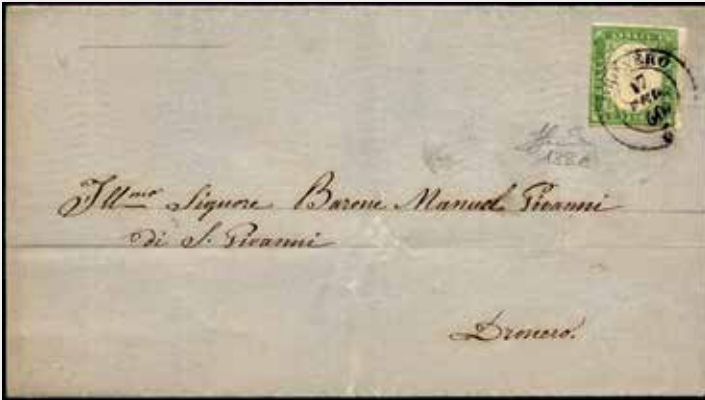 DRONERO
17
FEB
60
Ill.mo Signore Barone Manuel Givanni
di S. Givanni
Dronero.